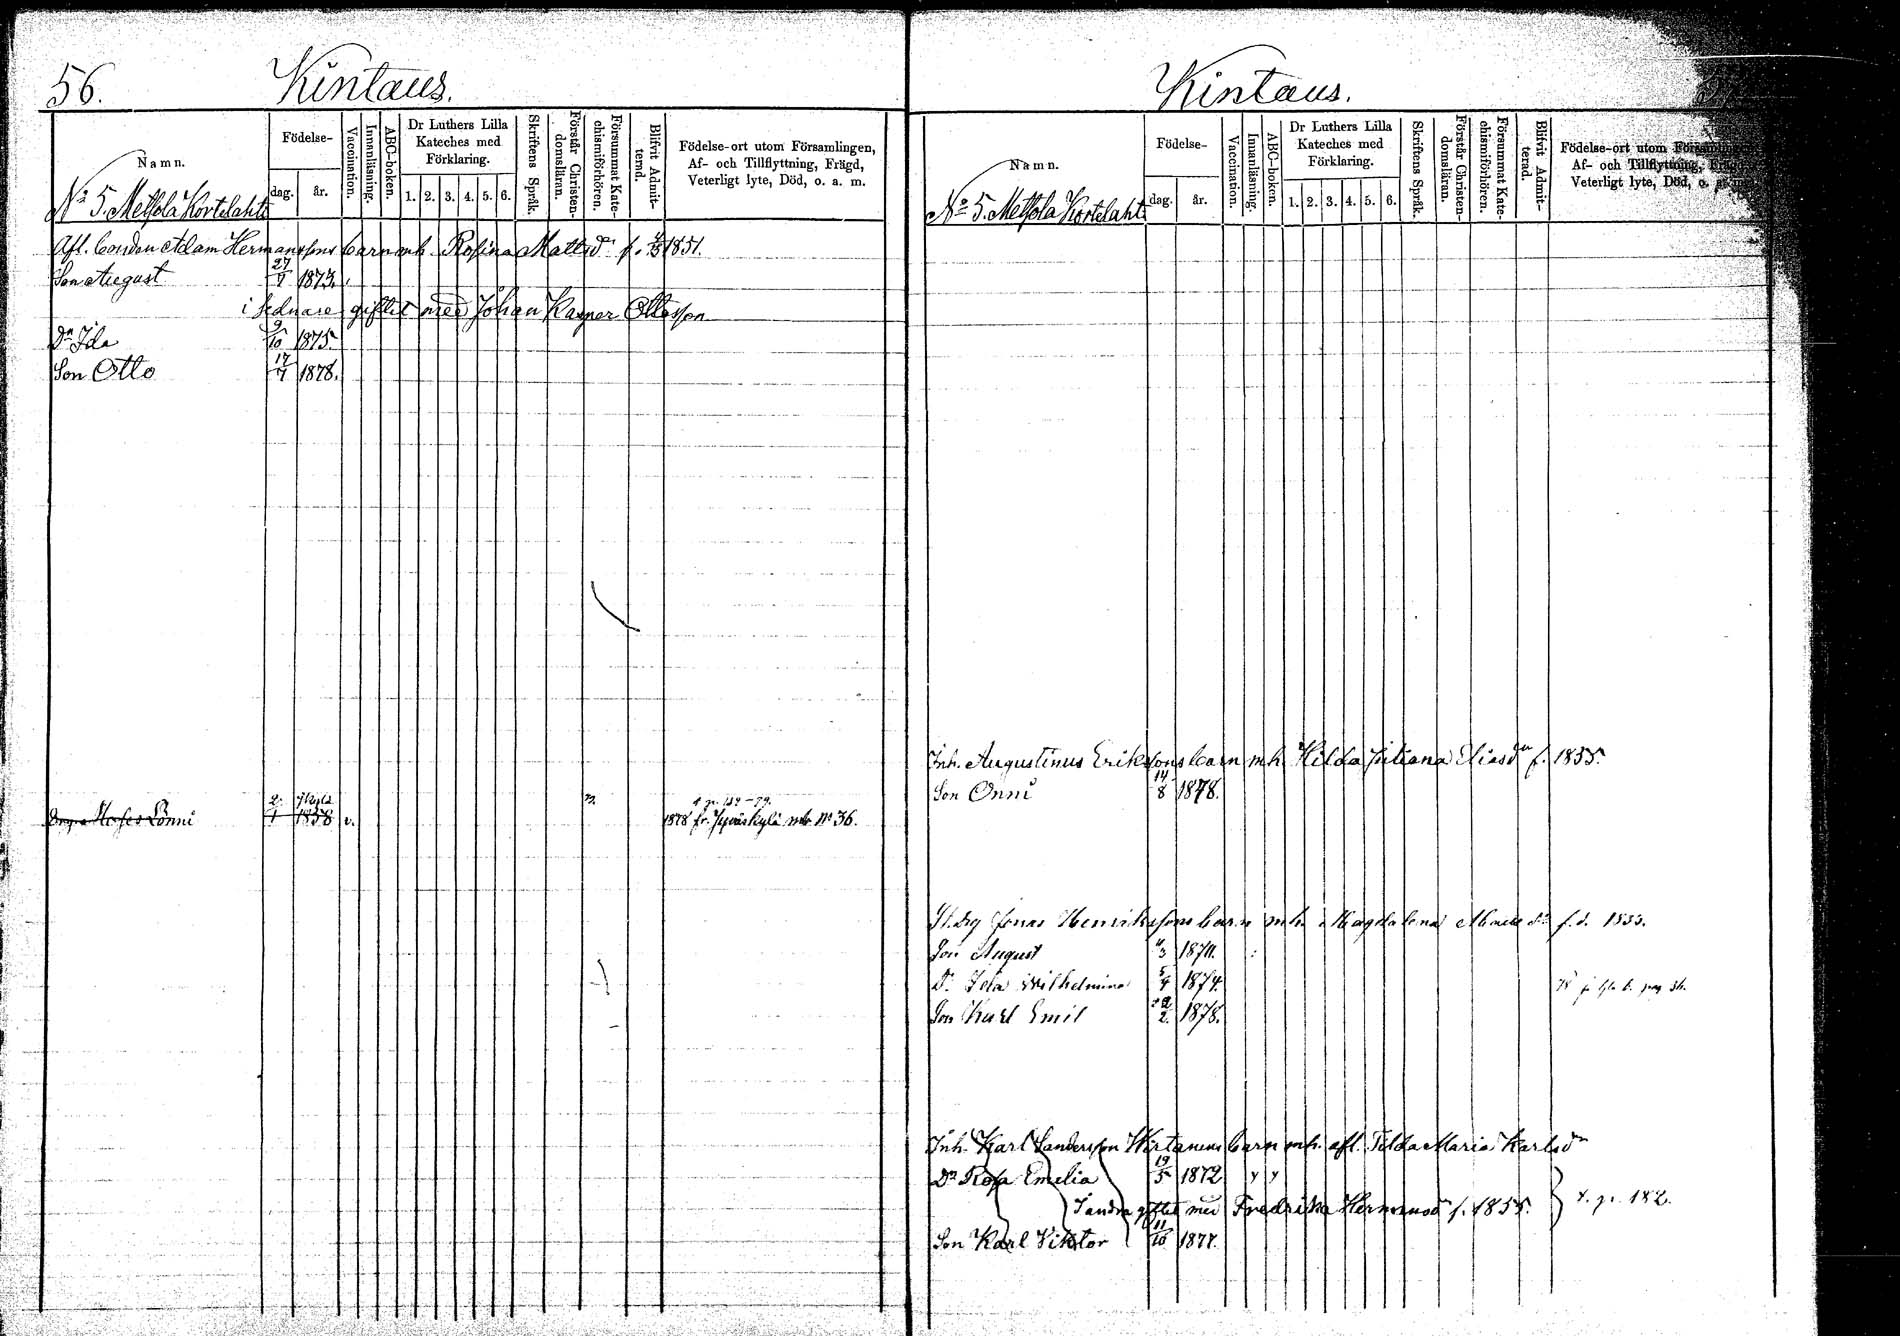 56.
Kintaus.
Namn.
Födelse-
dag.
år.
Vaccination.
Innanläsning.
ABC-boken.
Dr Luthers Lilla
Kateches med
Förklaring.
1. 2. 3. 4. 5. 6.
Skriftens Språk.
Förstår Christen-
domsläran.
Försummat Kate-
chismiförhören.
Blifvit Admit-
terad.
Födelse-ort utom Församlingen,
Af- och Tillflyttning, Frägd,
Veterligt lyte, Död, o. a. m.
No 5. Metsola Kortelahti
Afl. Bonden Adam Hermanssons barn mh. Rosina Mattsdr f. 1851.
Son August 27/7 1873.
i sednare giftet med Johan Kasper Ottosson
Dr Ida 9/10 1875.
Son Otto 17/7 1878.
Moses Lönni 2/1 1858 v. 1878 fr. Jyväskylä No 36.
Kintaus.
Namn.
Födelse-
dag.
år.
Vaccination.
Innanläsning.
ABC-boken.
Dr Luthers Lilla
Kateches med
Förklaring.
1. 2. 3. 4. 5. 6.
Skriftens Språk.
Förstår Christen-
domsläran.
Försummat Kate-
chismiförhören.
Blifvit Admit-
terad.
Födelse-ort utom Församlingen,
Af- och Tillflyttning, Frägd,
Veterligt lyte, Död, o. a. m.
No 5. Metsola Kortelaht
Inh. Augustinus Erikssons barn mh. Hilda Eliasdr f. 1855.
Son Onni 14/8 1878.
Jonas Henrikssons barn mh. Magdalena f. 1833.
Son August 1870.
Dr Ida Wilhelmina 5/4 1874.
Son Karl Emil 1878.
Inh. Karl Sandersson Wirtanens barn mh. afl. Tilda Maria Karlsdr
Dr Rosa Emelia 19/5 1872
I andra giftet med Fredrika Hermansdr f. 1855.
Son Karl Viktor 11/10 1877.